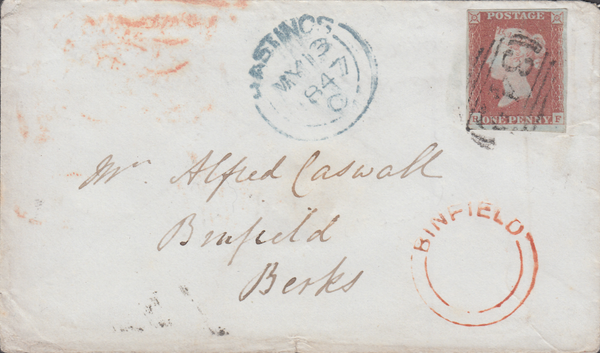 HASTINGS
MY 13
1847
C
POSTAGE
ONE PENNY
F
Mrs Alfred Caswall
Binfield
Berks
BINFIELD